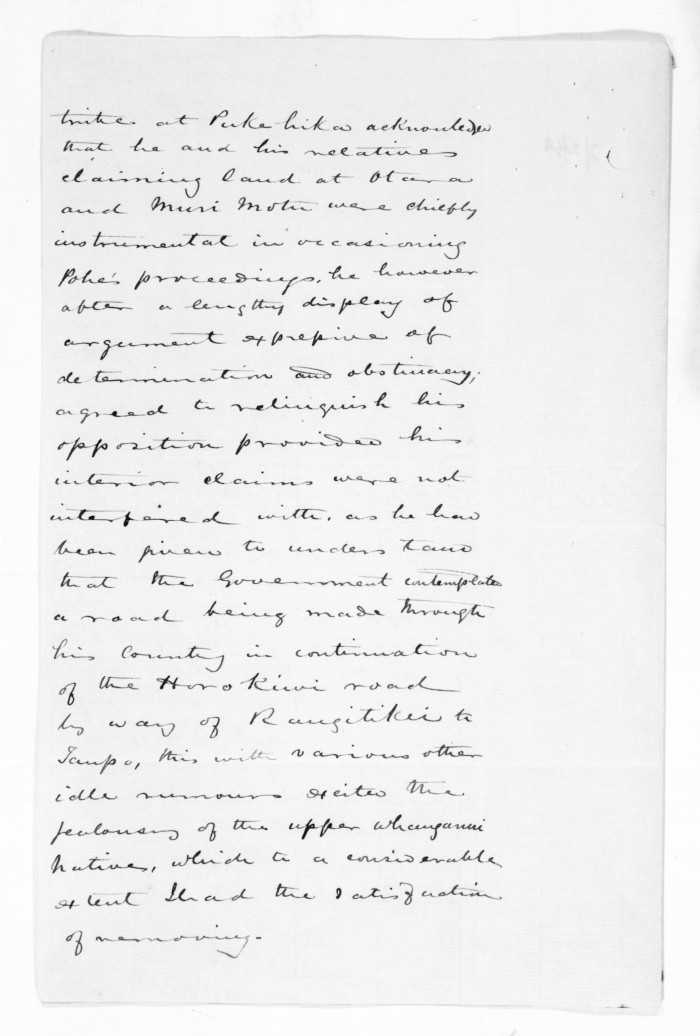 tribes at Pukehika acknowledged
that he and his relatives
claiming land at Otara
and Muri Motu were chiefly
instrumental in occasioning
Pohe's proceedings, he however
after a lengthy display of
argument expressive of
determination and obstinacy,
agreed to relinquish his
opposition provided his
interior claims were not
interfered with, as he had
been given to understand
that the Government contemplated
a road being made through
his Country in continuation
of the Horokiwi road
by way of Rangitikei to
Taupo, this with various other
idle rumours excited the
jealousy of the upper Whanganui
Natives, which to a considerable
extent I had the satisfaction
of removing.